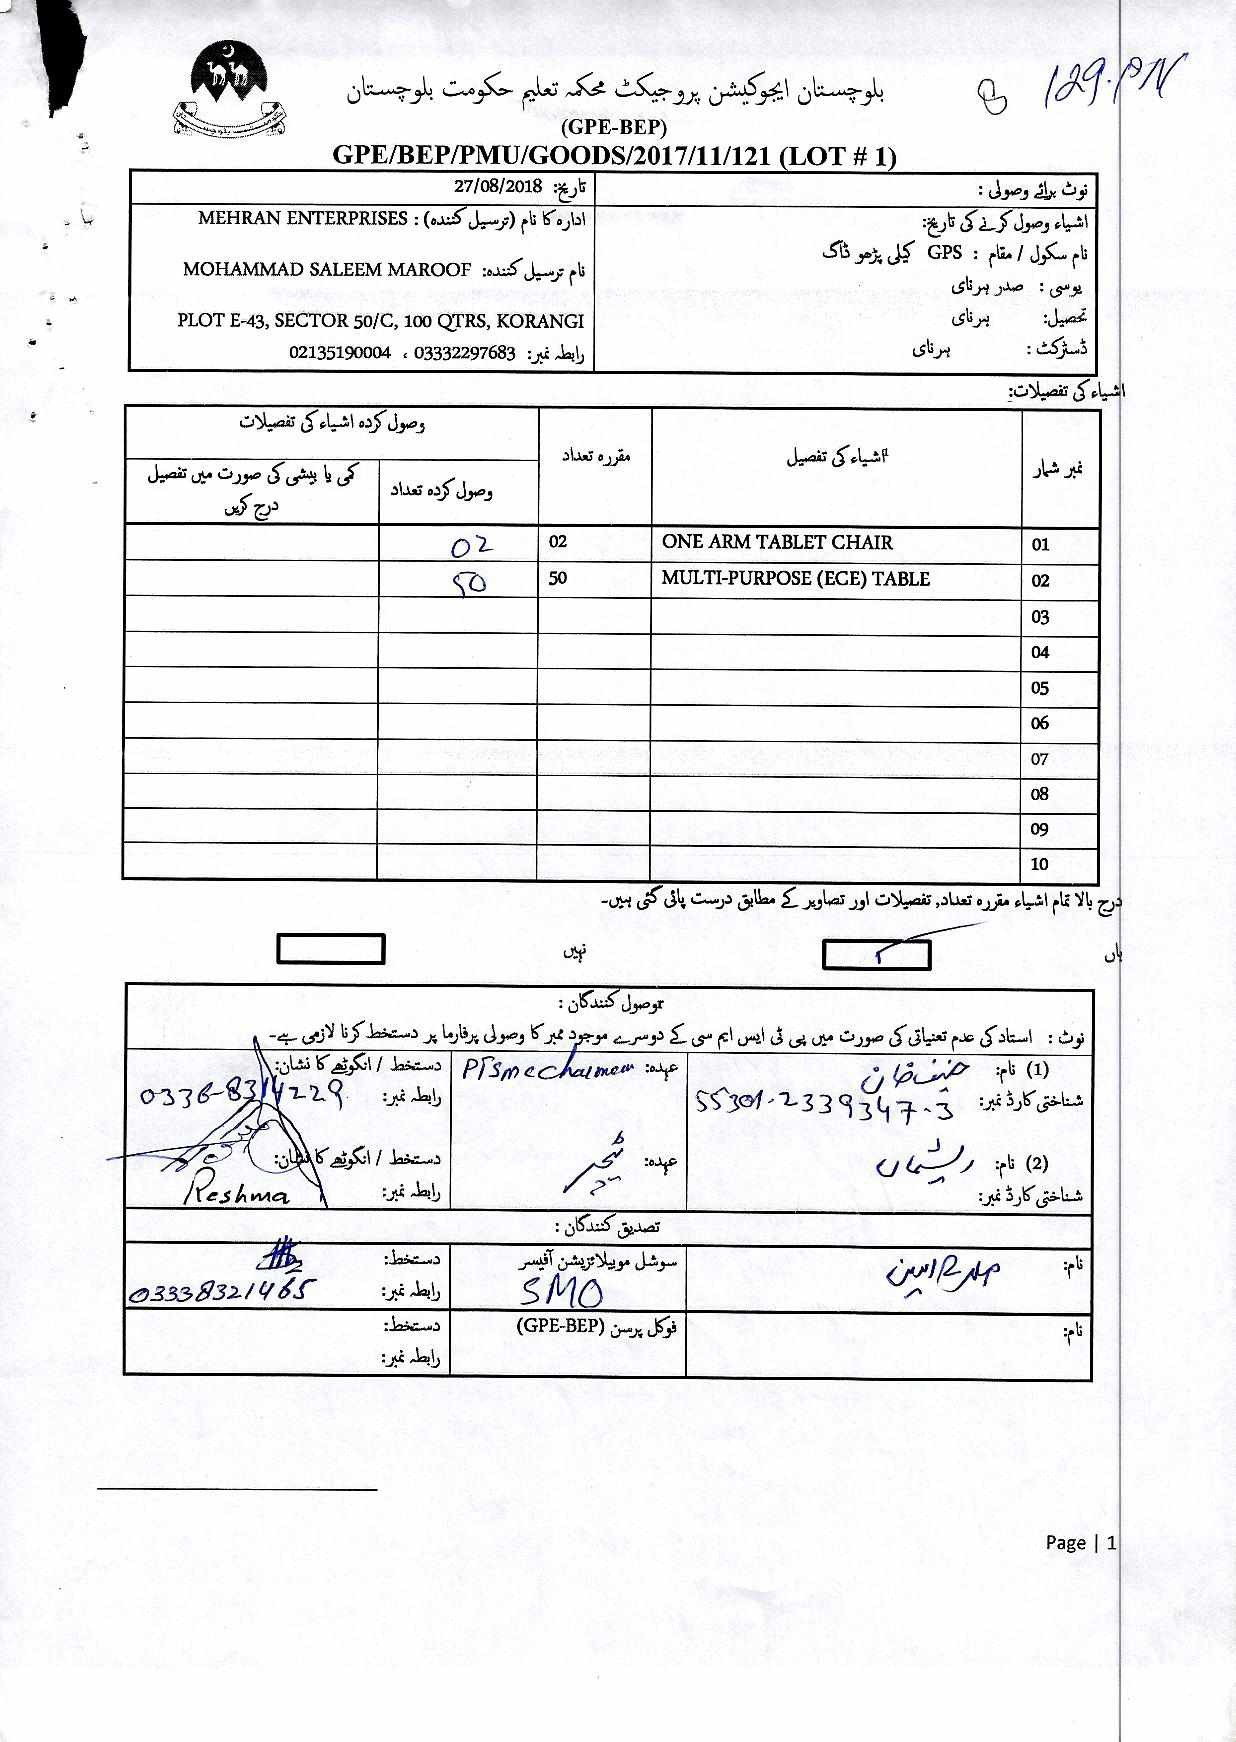 129.PN
بلوچستان ایجوکیشن پروجیکٹ محکمہ تعلیم حکومت بلوچستان
(GPE-BEP)
GPE/BEP/PMU/GOODS/2017/11/121 (LOT # 1)
نوٹ برائے وصولی : تاریخ: 27/08/2018
اشیاء وصول کرنے کی تاریخ: ادارہ کا نام (ترسیل کنندہ) : MEHRAN ENTERPRISES
نام سکول / مقام : GPS کیلی پڑھو ڈاگ
نام ترسیل کنندہ: MOHAMMAD SALEEM MAROOF
یوسی : صدر ہرنای
تحصیل: ہرنای PLOT E-43, SECTOR 50/C, 100 QTRS, KORANGI
ڈسٹرکٹ : ہرنای رابطہ نمبر: 03332297683 ، 02135190004
اشیاء کی تفصیلات:
نمبر شمار اشیاء کی تفصیل مقررہ تعداد وصول کردہ اشیاء کی تفصیلات
وصول کردہ تعداد کمی یا بیشی کی صورت میں تفصیل درج کریں
01 ONE ARM TABLET CHAIR 02 02
02 MULTI-PURPOSE (ECE) TABLE 50 50
03
04
05
06
07
08
09
10
درج بالا تمام اشیاء مقررہ تعداد, تفصیلات اور تصاویر کے مطابق درست پائی گئی ہیں۔
ہاں نہیں
وصول کنندگان :
نوٹ : استاد کی عدم تعیناتی کی صورت میں پی ٹی ایس ایم سی کے دوسرے موجود ممبر کا وصولی پرفارما پر دستخط کرنا لازمی ہے۔
(1) نام: حنیف خان عہدہ: PTSMC Chairmen دستخط / انگوٹھے کا نشان:
شناختی کارڈ نمبر: 55301-2339347-3 رابطہ نمبر: 0336-8314229
(2) نام: ریشماں عہدہ: ٹیچر دستخط / انگوٹھے کا نشان:
شناختی کارڈ نمبر: رابطہ نمبر: Reshma
تصدیق کنندگان :
نام: سوشل موبیلائزیشن آفیسر دستخط:
SMO رابطہ نمبر: 03338321465
نام: فوکل پرسن (GPE-BEP) دستخط:
رابطہ نمبر:
Page | 1